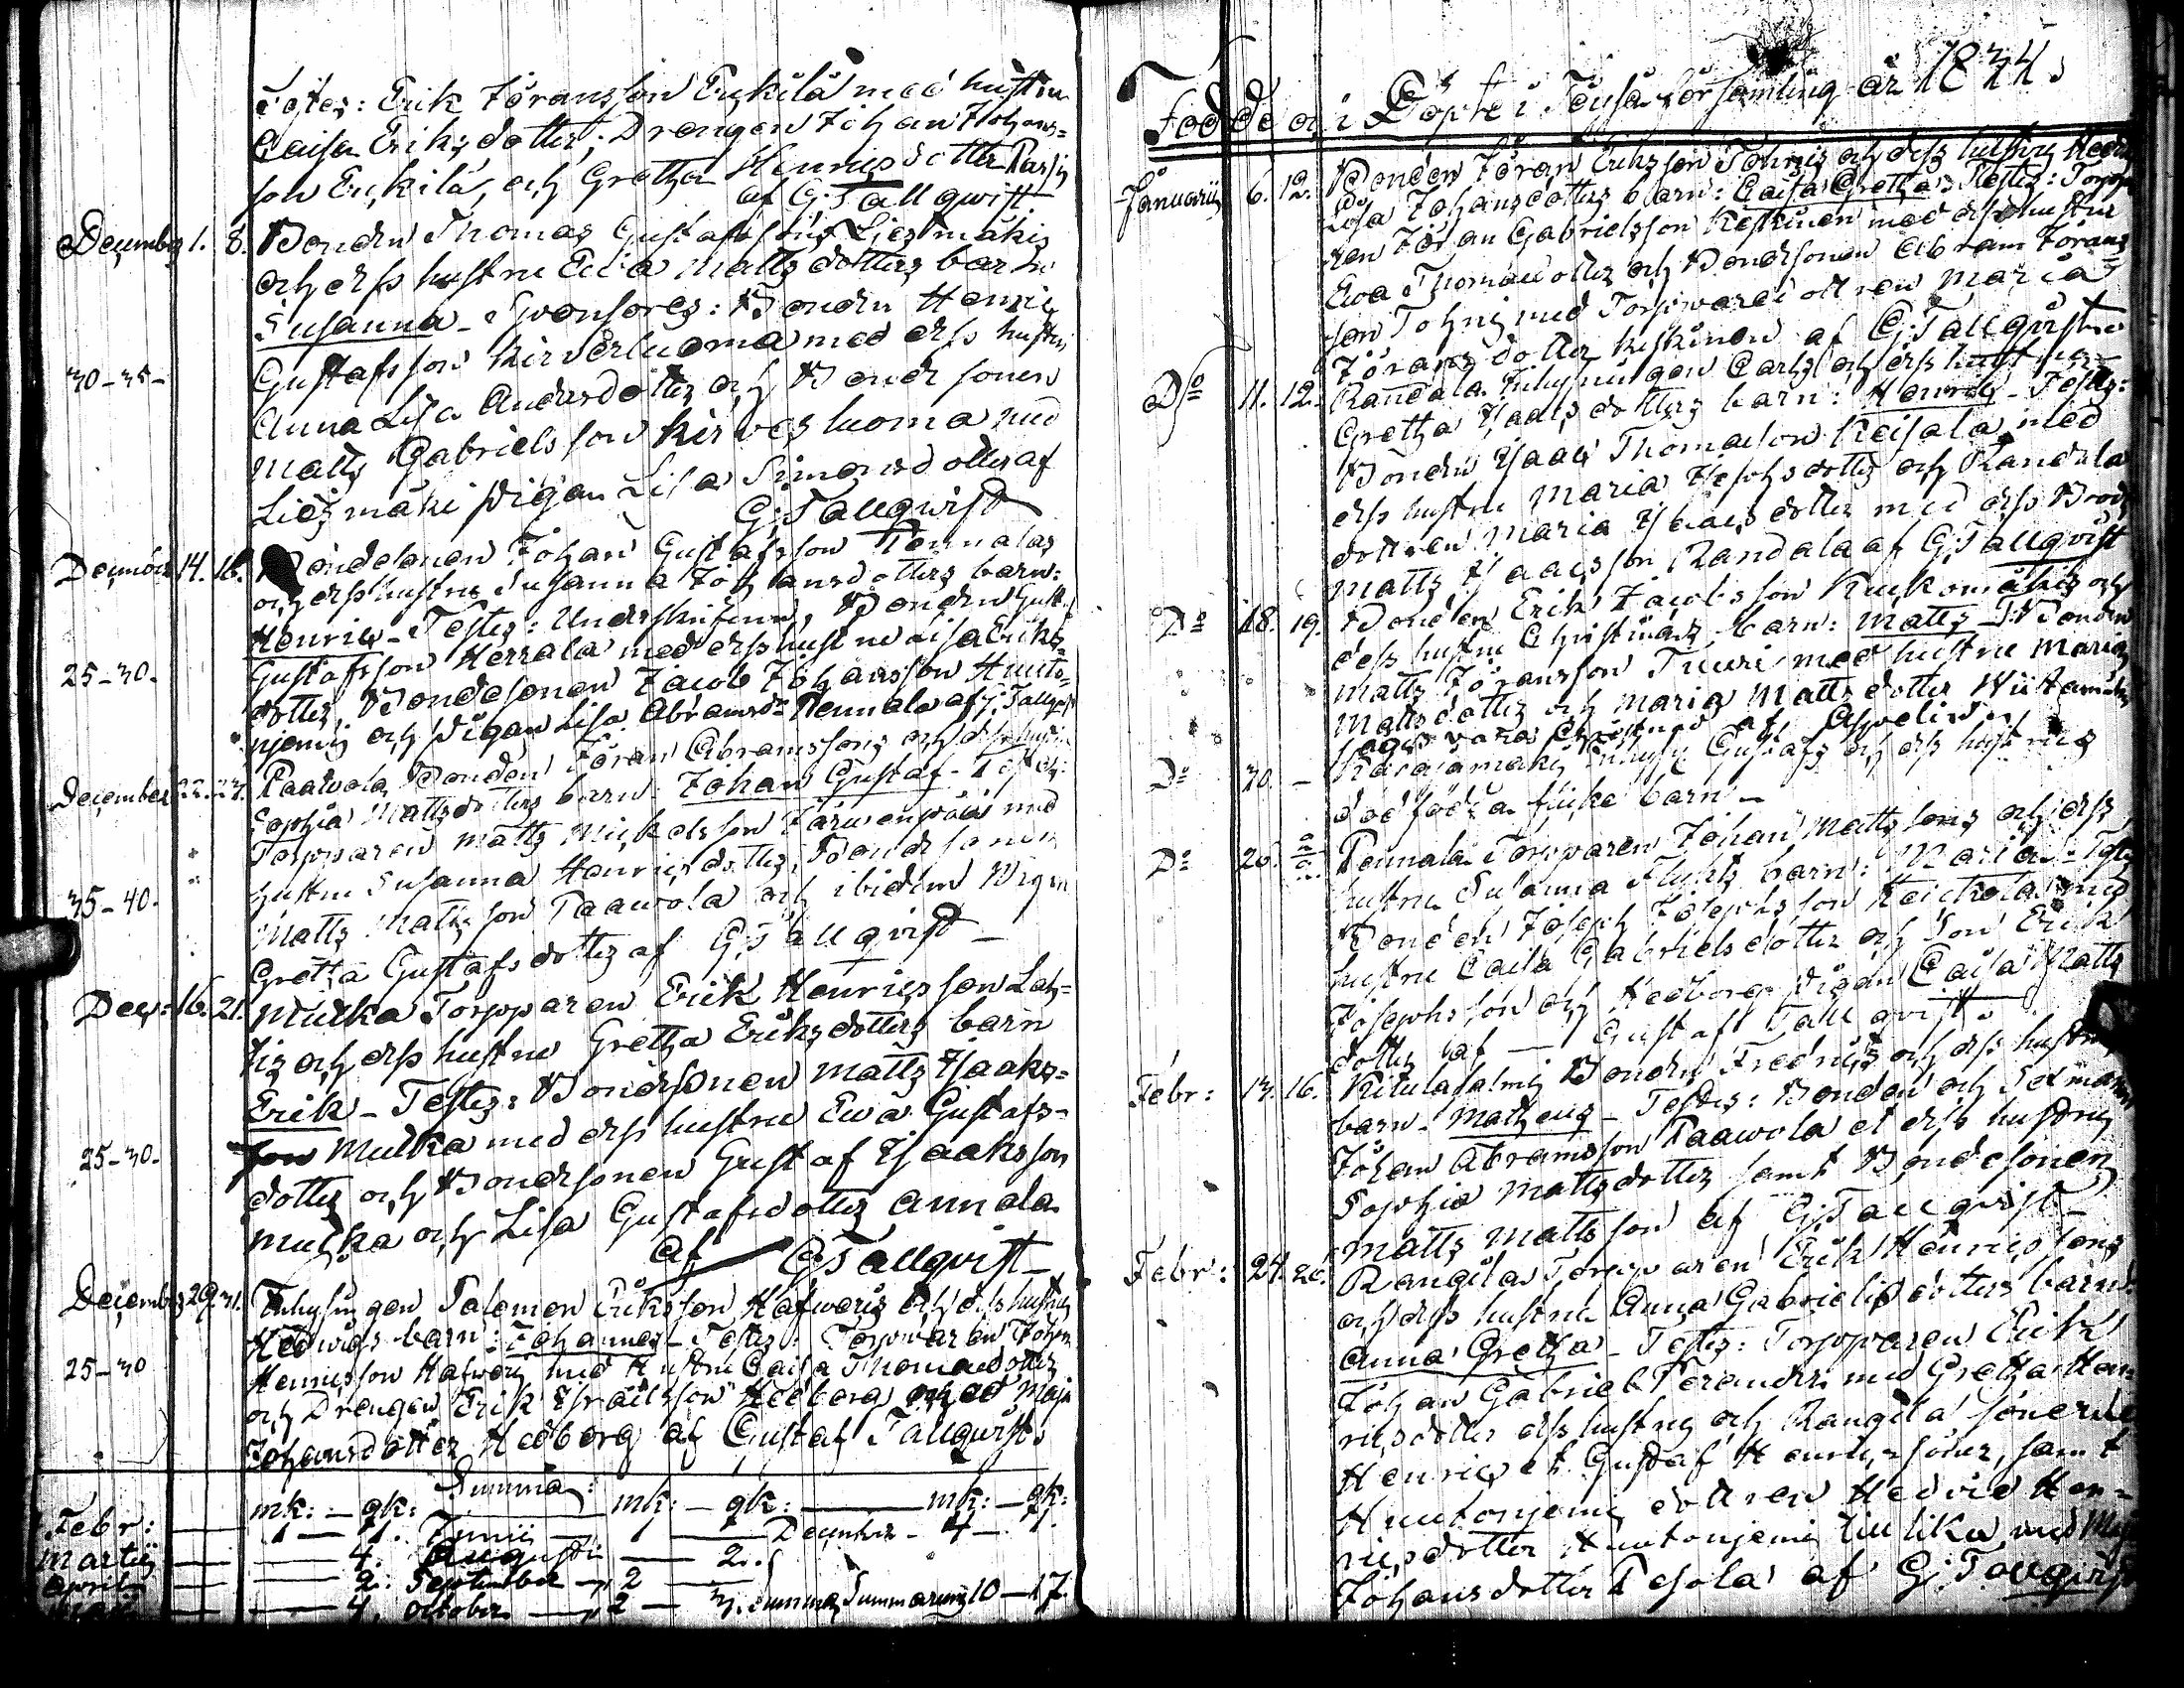 Testes: Erik Jöransson Erkilä med hustru
Caisa Eriksdotter; Drengen Johan Johans=
son Erkilä, och Gretha Henricsdotter
af G: Tallqvist
December 1. 8. Bonden Thomas Gustafssons Liesmäkis
och dess hustru Ewa Mattsdotters barn
Susanna - Sponsores: Bonden Henric
Gustafsson Kirvesluoma med dess hustru
30-35- Anna Lisa Andersdotter och Bondesonen
Matts Gabrielsson Kirvesluoma med
Liesmäki Pigan Lisa Simonsdotter af
G: Tallqvist
14. 16. Bondesonen Johan Gustafsson Pennalas
och dess hustru Susanna Johansdotters barn:
Henric - Testes: Bonden Gust.
Gustafsson Herrala med dess hustru Lisa Eriks-
25-30. dotter, Bondesonen Jacob Johansson Hunto-
njemi och Pigan Lisa Abramsdr Pennala af G. Tallqvist
December 22. 23. Paawola Bonden Jöran Abramssons och dess hustru
Sophia Mattsdotters barn: Johan Gustaf - Testes:
Torpparen Matts Mickelsson Järwenpää med
hustru Susanna Henricsdotter, Bondesonen
35-40. Matts Mattsson Paawola och ibidem Pigan
Gretha Gustafsdotter af G: Tallqvist -
Dec: 16. 21. Mulka Torpparen Erick Henricsson Lah=
tis och dess hustru Gretha Eriksdotters barn
Erik - Testes: Bondesonen Matts Isaaks=
son Mulka med dess hustru Ewa Gustafs-
25-30. dotter och Bondesonen Gustaf Isaaksson
Mulka och Lisa Gustafsdotter Annala
af G Tallqvist -
December 29. 31. Inhysingen Salomon Eriksson Hafweris och dess hustru
Hedwigs barn: Johannes - Testes: Torpparen Johan
Henricsson Hafweri med Hustru Caisa Thomasdotter
25-30 och Drengen Erik Israelsson Hedborg med Maja
Johansdotter Hedborg af Gustaf Tallqvist.
Summa:
mk: - qk: mk: - qk: mk: - qk:
Febr: 1 - 1. Junii 1 December - 4 - 1.
Martii 4. Augusti 2.
April 2. September 2
4. October 2 - 3. Summa Summarum 10 - 17.
Födde och Döpte i Töysä församling år 1834.
Januarii 6. 12. Bonden Jöran Erikssons Tohnis och dess hustru
Lisa Johansdotters barn: Caisa Gretha - Testes: Torppa
ren Jöran Gabrielsson Keskinen med dess hustru
Ewa Thomasdotter och Bondesonen Abram Jörans
son Tohni med Torpparedottren Maria
Jöransdotter Keskinen af G: Tallqvist
Do 11. 12. Randala Inhysingen Carls och dess hustrus
Gretha Isaacsdotters barn: Henric - Testes:
Bonden Isaac Thomasson Keisala med
dess hustru Maria Josephsdotter och Randala
dottren Maria Isaacsdotter med dess Broder
Matts Isaacsson Randala af G: Tallqvist
Do 18. 19. Bonden Erik Jacobsson Kuckomäkis och
dess hustru Christinas barn: Matts - T: Bonden
Matts Jöransson Tuuri med hustru Maria
Mattsdotter och Maria Mattsdotter
af Aspelin
Do 30. - Karajamäki Inhys: Gustafs och dess hustrus
dödfödda flicke barn -
Do 26. Pennala Torpparen Johan Mattssons och dess
hustru Susanna barn: Maria - Testes
Bonden Joseph Josephsson Keickola med
hustru Caisa Gabrielsdotter och Son Erik
Josephsson och Hedborgs Pigan Caisa Matts
dotter af - Gustaf Tallqvist.
Febr: 13. 16. Ritulasalmi Bonden Fredrics och dess hustrus
barn - Matheus - Testes: Bonden och Sexmannen
Johan Abramsson Paawola et dess hustru
Sophia Mattsdotter samt Bondesonen
Matts Mattsson af G: Tallqvist -
Febr: 24. 26. Rangila Torpparen Erik Henricssons
och dess hustru Anna Gabrielsdotters barn:
Anna Gretha - Testes: Torpparen Erik
Johan Gabriel Perander med Gretha Hen-
ricsdotter dess hustru och Rangila sönerne
Henric et Gustaf Henricssöner, samt
Huntonjemi dottren Hedvig Hen-
ricsdotter Huntonjemi tillika med Maja
Johansdotter Pesola af G: Tallqvist